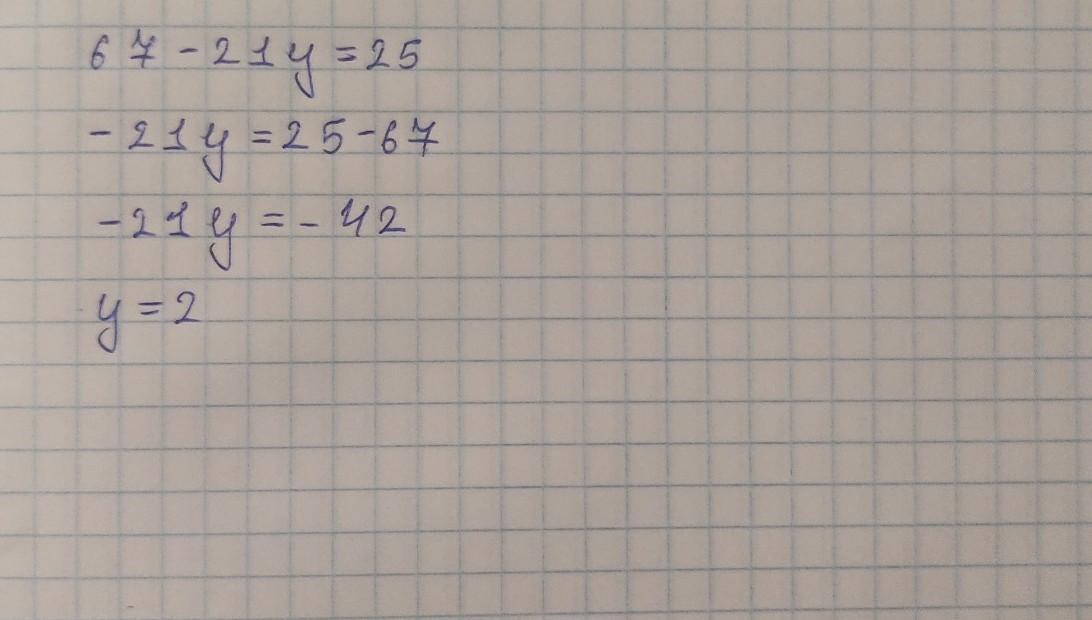 67-21y=25
-21y=25-67
-21y=-42
y=2